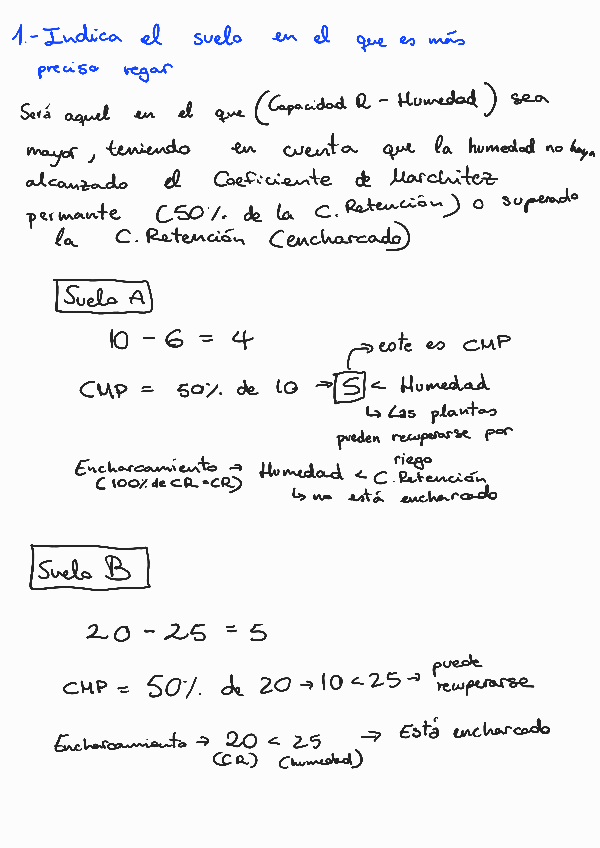 1.- Indica el suelo en el que es más
preciso regar
Será aquel en el que (Capacidad R - Humedad) sea
mayor, teniendo en cuenta que la humedad no haya
alcanzado el Coeficiente de Marchitez
permante (50% de la C. Retención) o superado
la C. Retención (encharcado)
Suelo A
10 - 6 = 4
→ este es CMP
CMP = 50% de 10 → 5 < Humedad
↳ Las plantas
pueden recuperarse por
riego
Encharcamiento → Humedad < C. Retención
(100% de CR = CR) ↳ no está encharcado
Suelo B
20 - 25 = 5
CMP = 50% de 20 → 10 < 25 → puede
recuperarse
Encharcamiento → 20 < 25 → Está encharcado
(CR) (humedad)